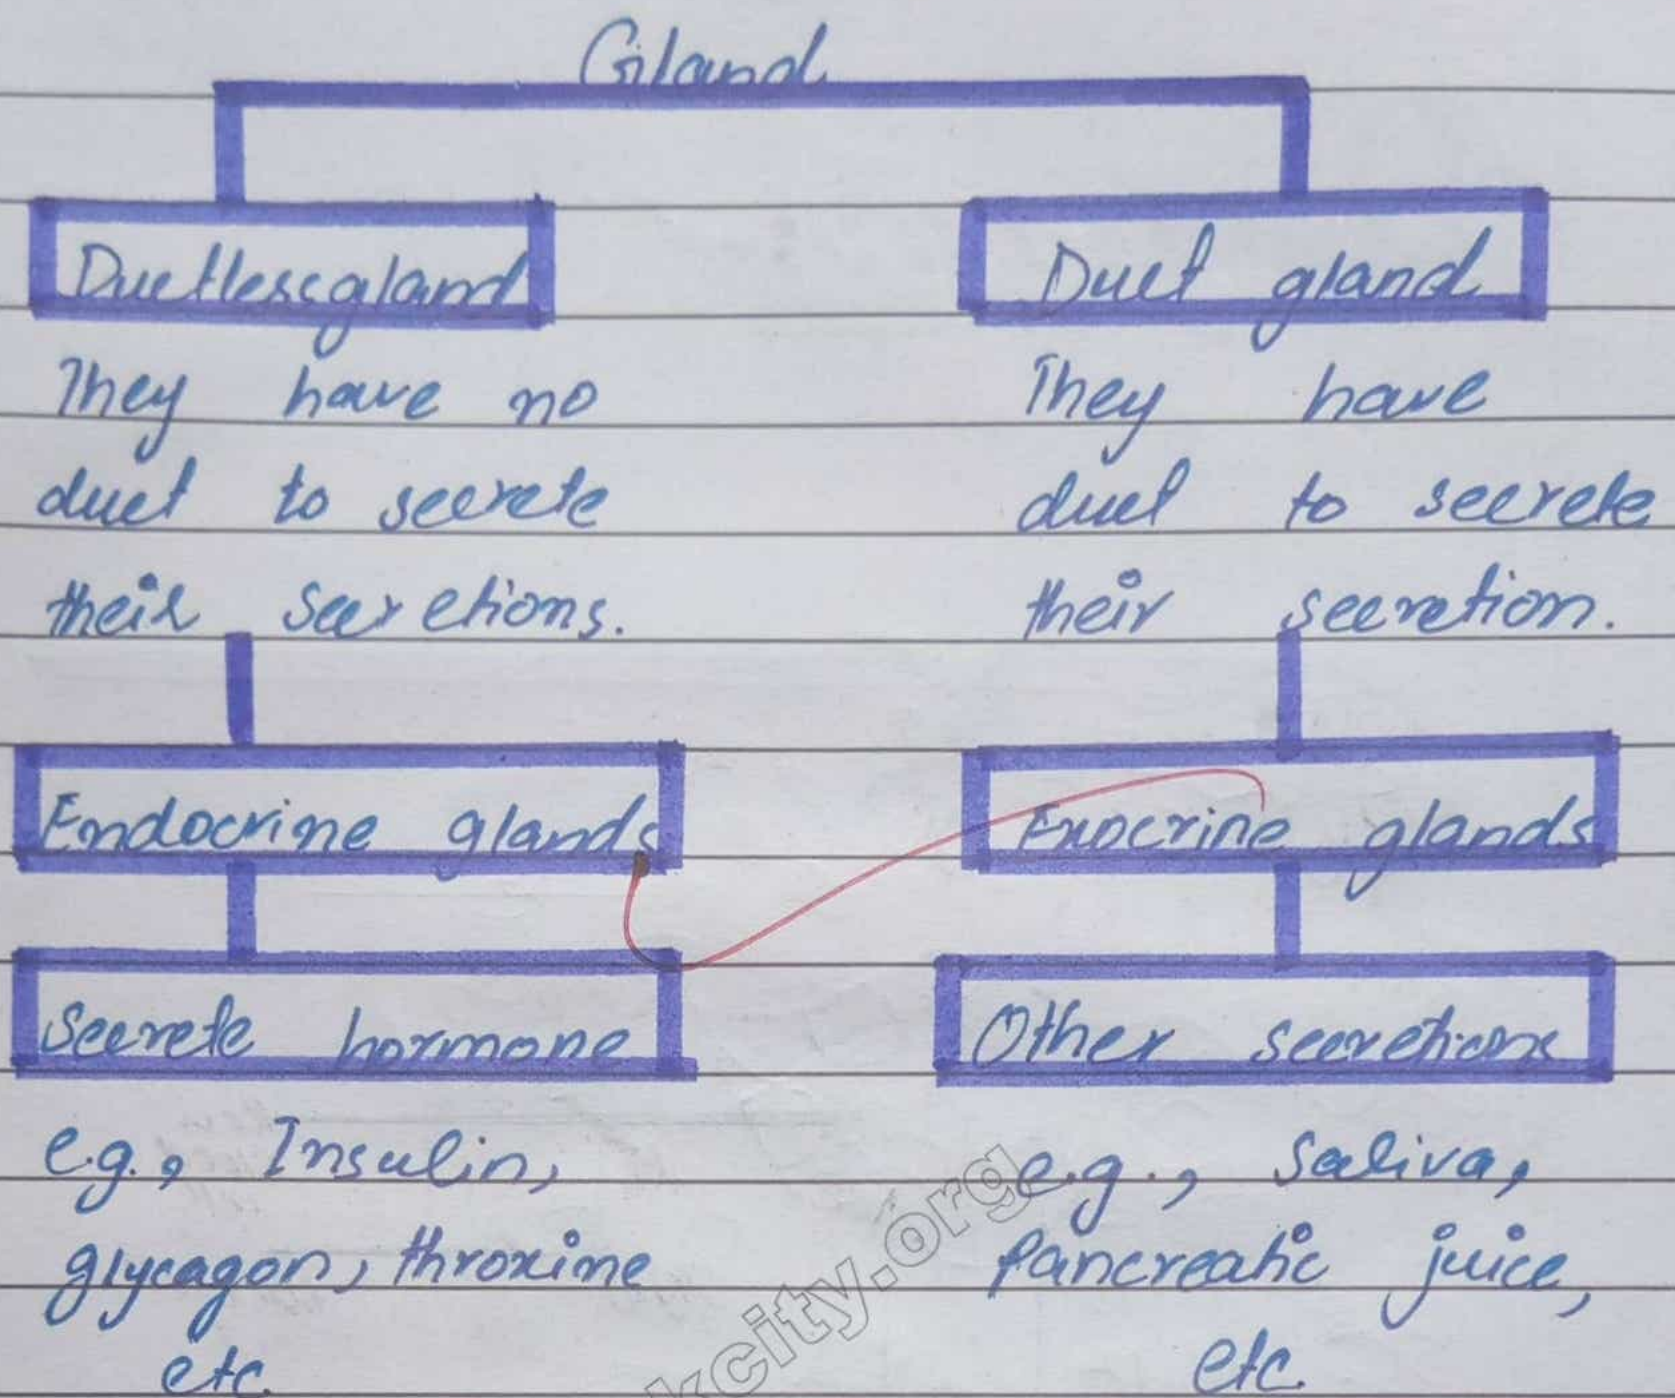 Gland
Ductless gland
They have no
duct to secrete
their secretions.
Endocrine glands
Secrete hormone
e.g., Insulin,
glycagon, throxine
etc.
Duct gland
They have
duct to secrete
their secretion.
Exocrine glands
Other secretions
e.g., Saliva,
Pancreatic juice,
etc.
kcity.org